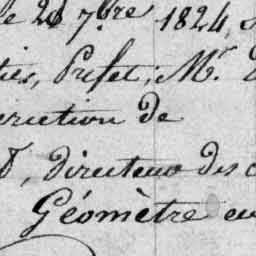 le 20 7.bre 1824, s
ties, Préfet; Mr.
irection de
, directeur des c
Géomètre en